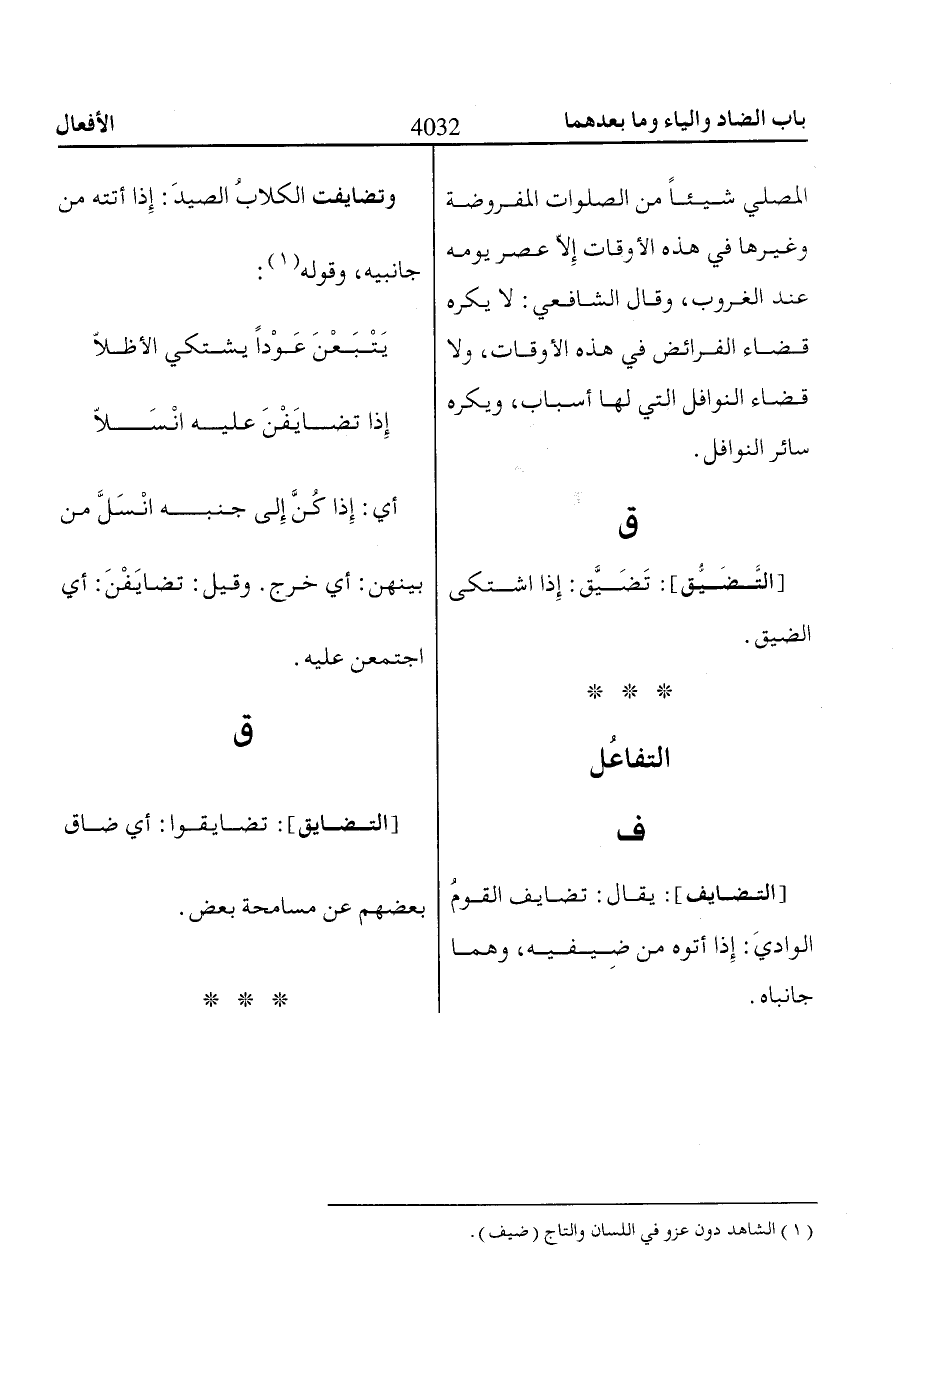 باب الضاد والياء وما بعدهما
4032
الأفعال
المصلي شيئاً من الصلوات المفروضة
وغيرها في هذه الأوقات إلاّ عصر يومه
عند الغروب، وقال الشافعي: لا يكره
قضاء الفرائض في هذه الأوقات، ولا
قضاء النوافل التي لها أسباب، ويكره
سائر النوافل.
ق
[التَّضَيُّق]: تَضَيَّق: إذا اشتكى
الضيق.
* * *
التفاعُل
ف
[التضايف]: يقال: تضايف القومُ
الواديَ: إذا أتوه من ضِيفيه، وهما
جانباه.
وتضايفت الكلابُ الصيدَ: إذا أتته من
جانبيه، وقوله(١):
يَتْبَعْنَ عَوْداً يشتكي الأظلاّ
إذا تضايَفْنَ عليه انْسَلاّ
أي: إذا كُنَّ إلى جنبه انْسَلَّ من
بينهن: أي خرج. وقيل: تضايَفْنَ: أي
اجتمعن عليه.
ق
[التضايق]: تضايقوا: أي ضاق
بعضهم عن مسامحة بعض.
* * *
(١) الشاهد دون عزو في اللسان والتاج (ضيف).